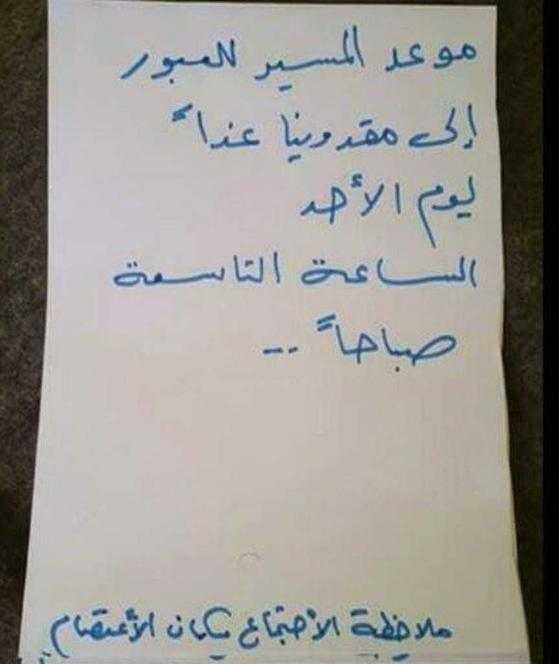 موعد المسير للعبور
إلى مقدونيا غداً
ليوم الأحد
الساعة التاسعة
صباحاً ..
ملاحظة الأجتماع بمكان الأعتصام